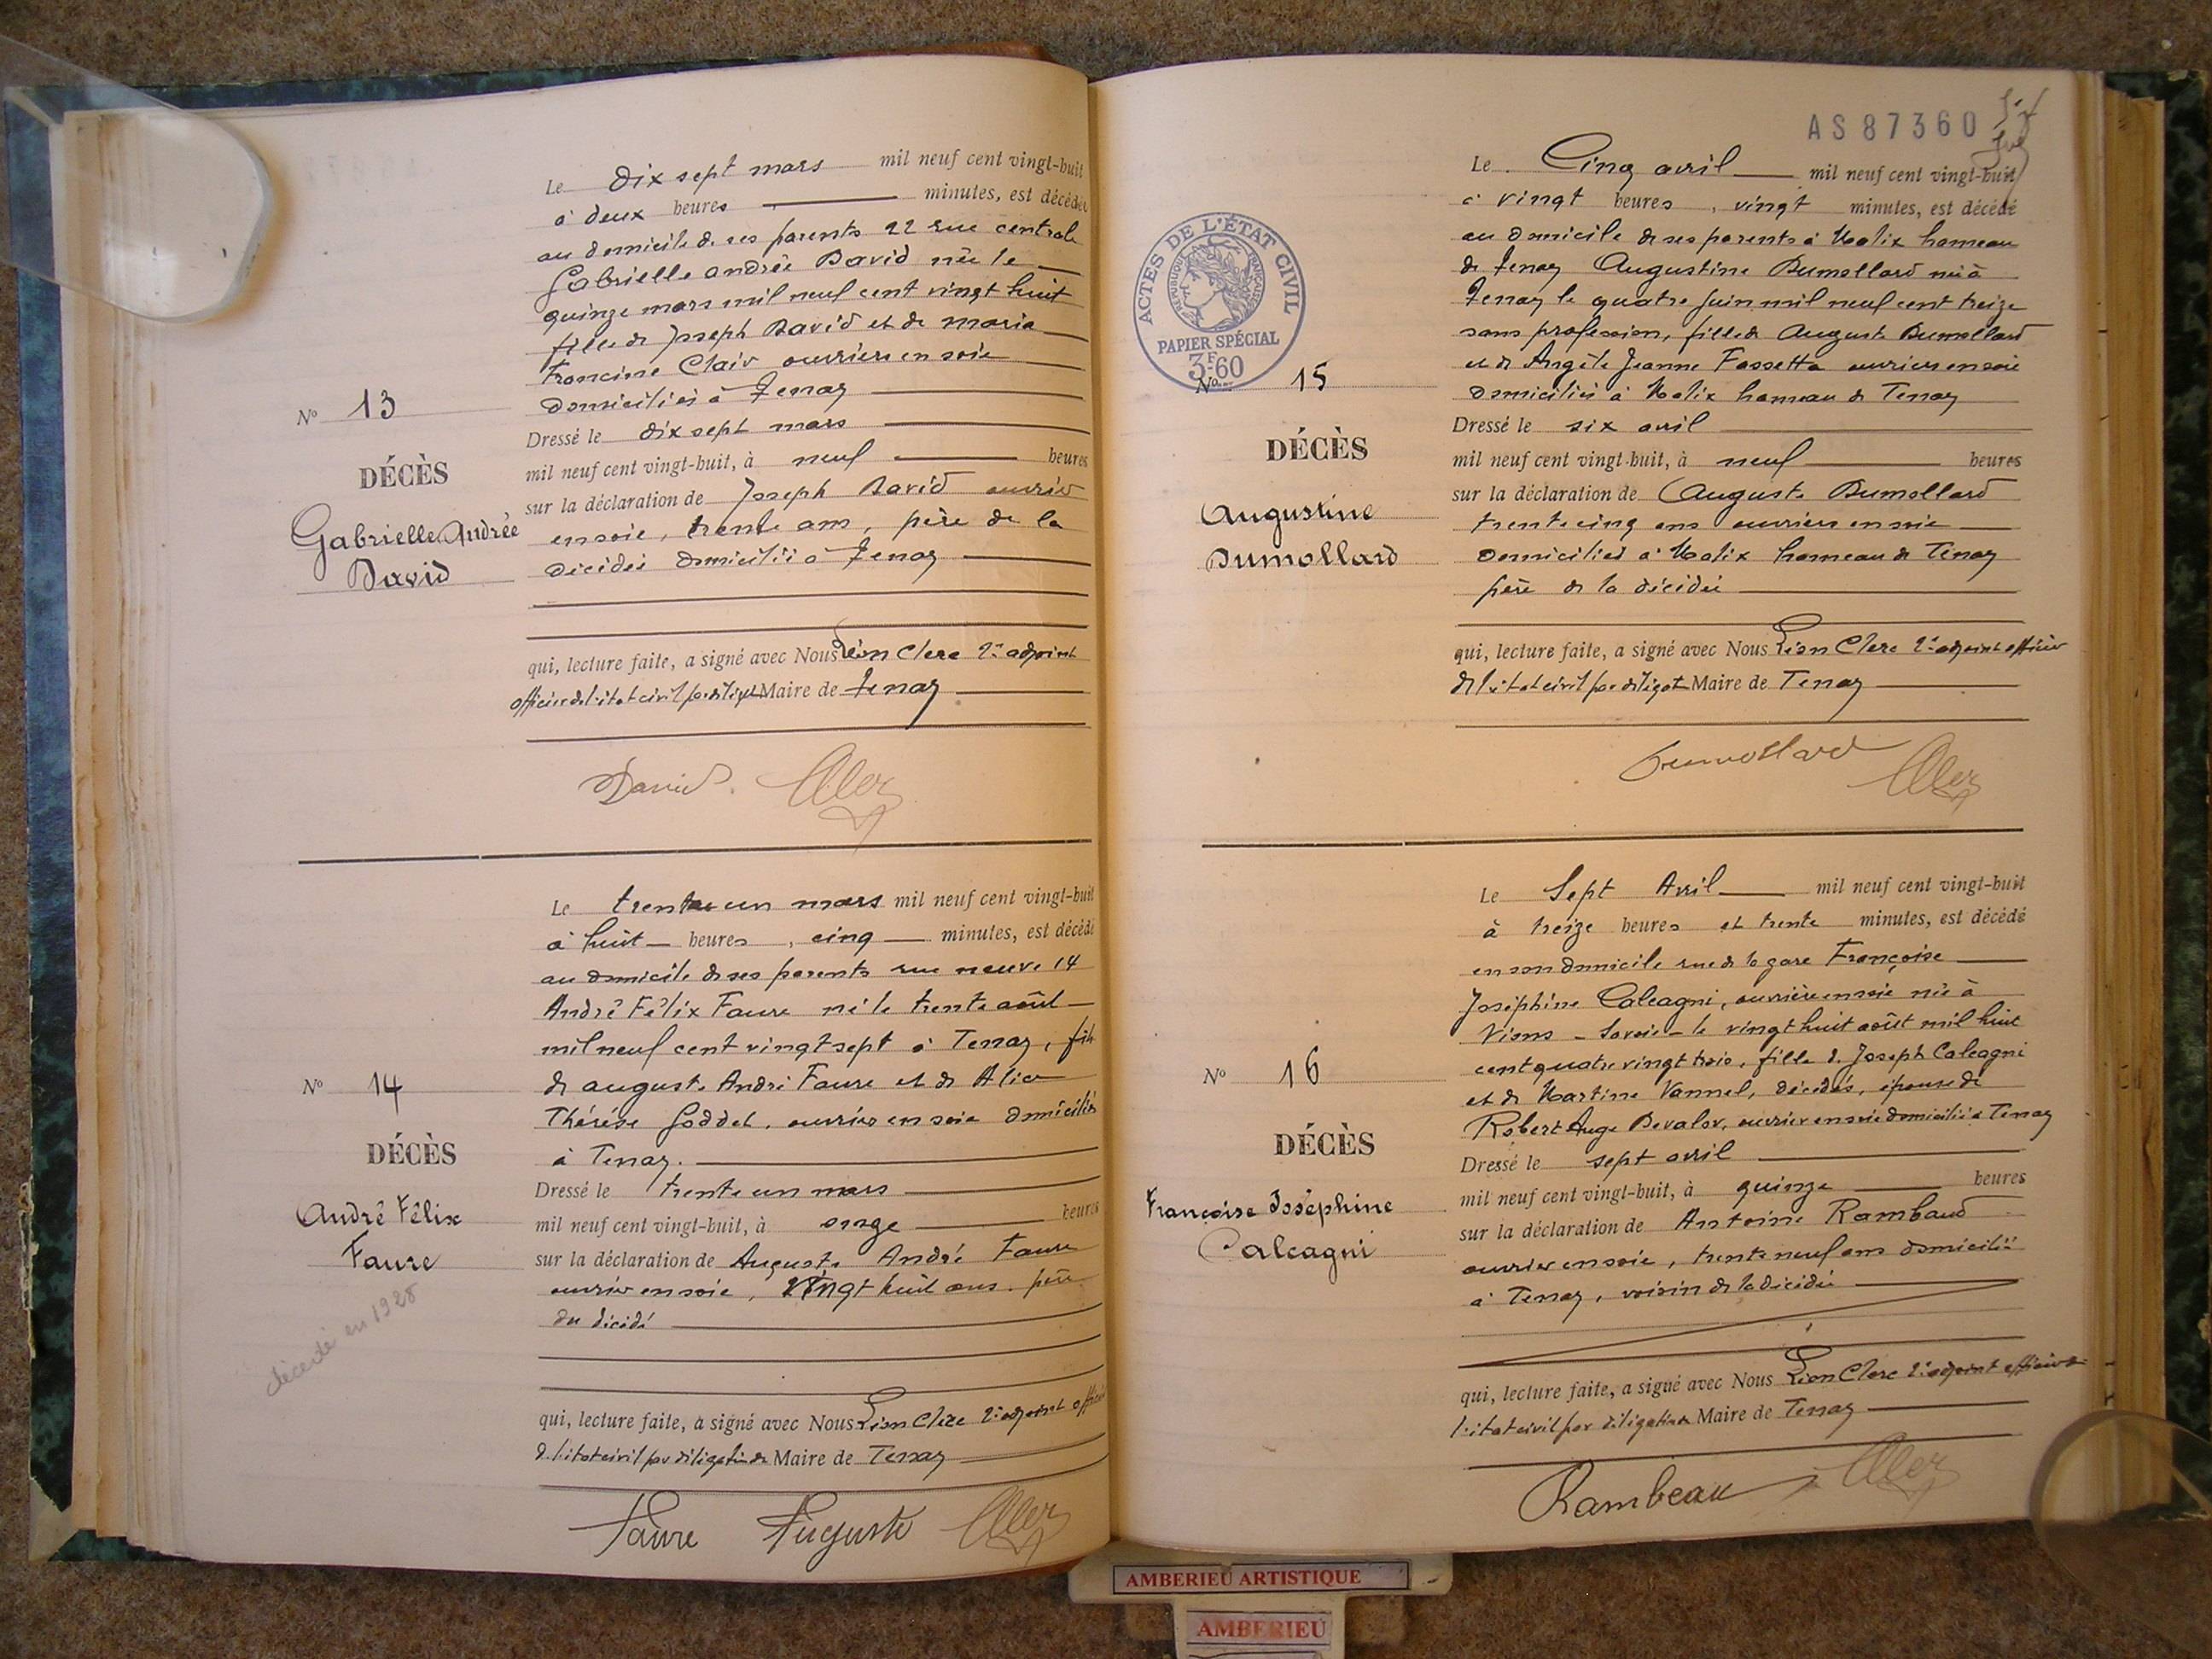 Le dix sept mars mil neuf cent vingt-huit
à deux heures minutes, est décédée
au domicile de ses parents 22 rue centrale
Gabrielle andrée David née le
quinze mars mil neuf cent vingt huit
fille de Joseph David et de maria
Francine Clair ouvriers en soie
domiciliés à Tenay
Dressé le dix sept mars
mil neuf cent vingt-huit, à neuf heures
sur la déclaration de Joseph David ouvrier
en soie, trente ans, père de la
décédée domicilié à Tenay
qui, lecture faite, a signé avec Nous Léon Clerc 2e adjoint
officier de l'état civil par Maire de Tenay
No 13
DÉCÈS
Gabrielle Andrée
David
David.
Le trente un mars mil neuf cent vingt-huit
à huit heures, cinq minutes, est décédé
au domicile de ses parents rue neuve 14
André Félix Faure né le trente août
mil neuf cent vingt sept à Tenay, fils
de auguste André Faure et de Alice
Thérèse Goddet, ouvriers en soie domiciliés
à Tenay.
Dressé le trente un mars
mil neuf cent vingt-huit, à onze heures
sur la déclaration de Auguste André Faure
ouvrier en soie, vingt huit ans. père
du décédé
qui, lecture faite, a signé avec Nous Léon Clerc 2e adjoint officier
de l'état civil par délégation du Maire de Tenay
No 14
DÉCÈS
André Félix
Faure
décédé en 1928
Faure Auguste
AS 87360
ACTES DE L'ÉTAT CIVIL
RÉPUBLIQUE FRANÇAISE
PAPIER SPÉCIAL
3F.60
Le Cinq avril mil neuf cent vingt-huit
à vingt heures, vingt minutes, est décédé
au domicile de ses parents à Malix hameau
de Tenay Augustine Dumollard née à
Tenay le quatre juin mil neuf cent treize
sans profession, fille de Auguste Dumollard
et de Angèle Jeanne Fossetta ouvriers en soie
domiciliés à Malix hameau de Tenay
Dressé le six avril
mil neuf cent vingt-huit, à neuf heures
sur la déclaration de Auguste Dumollard
trente cinq ans ouvrier en soie
domicilié à Malix hameau de Tenay
père de la décédée
qui, lecture faite, a signé avec Nous Léon Clerc 2e adjoint officier
de l'état civil par Maire de Tenay
No 15
DÉCÈS
Augustine
Dumollard
Dumollard
Le Sept Avril mil neuf cent vingt-huit
à treize heures et trente minutes, est décédé
en son domicile rue de la gare Françoise
Joséphine Calcagni, ouvrière en soie née à
Vions - Savoie - le vingt huit août mil huit
cent quatre vingt trois, fille de Joseph Calcagni
et de Martine Vannel, décédés, épouse de
Robert Ange Devalor, ouvrier en soie domicilié à Tenay
Dressé le sept avril
mil neuf cent vingt-huit, à quinze heures
sur la déclaration de Antoine Rambaud
ouvrier en soie, trente neuf ans domicilié
à Tenay, voisin de la décédée
qui, lecture faite, a signé avec Nous Léon Clerc 2e adjoint officier de
l'état civil par délégation du Maire de Tenay
No 16
DÉCÈS
Françoise Joséphine
Calcagni
Rambeau
AMBERIEU ARTISTIQUE
AMBERIEU